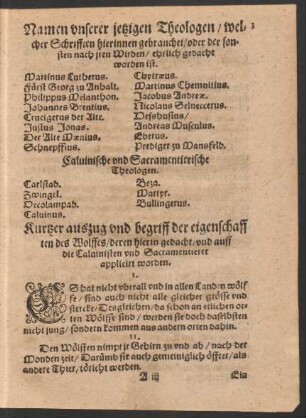 Namen vnserer jetzigen Theologen / wel-
cher Schrifften hierinnen gebrauchet / oder der son-
sten nach jren Wirden / ehrlich gedacht
worden ist.
3
Martinus Lutherus.
Fürst Georg zu Anhalt.
Philippus Melanthon.
Johannes Brentius.
Crucigerus der Alte.
Justus Jonas.
Der Alte Mœnius.
Schnepffius.
Chytræus.
Martinus Chemnitius.
Jacobus Andreæ.
Nicolaus Selneccerus.
Heshusius /
Andreas Musculus.
Eberus.
Prediger zu Mansfeld.
Caluinische vnd Sacramentierische
Theologen.
Carlstad.
Zwingel.
Oecolampad.
Caluinus.
Beza.
Martyr.
Bullingerus.
Kurtzer auszug vnd begriff der eigenschaff
ten des Wolffes / deren hierin gedacht / vnd auff
die Caluinisten vnd Sacramentierer
applicirt worden.
I.
ES hat nicht vberall vnd in allen Landen wölf-
fe / sind auch nicht alle gleicher grösse vnd
stercke / Desgleichen / da schon an etlichen or-
ten Wölffe sind / werden sie doch daselbsten
nicht jung / sondern kommen aus andern orten dahin.
II.
Den Wölffen nimpt jr Gehirn zu vnd ab / nach der
Monden zeit / Darümb sie auch gemeiniglich öffter / als
andere Thier / töricht werden.
A iij
Ein